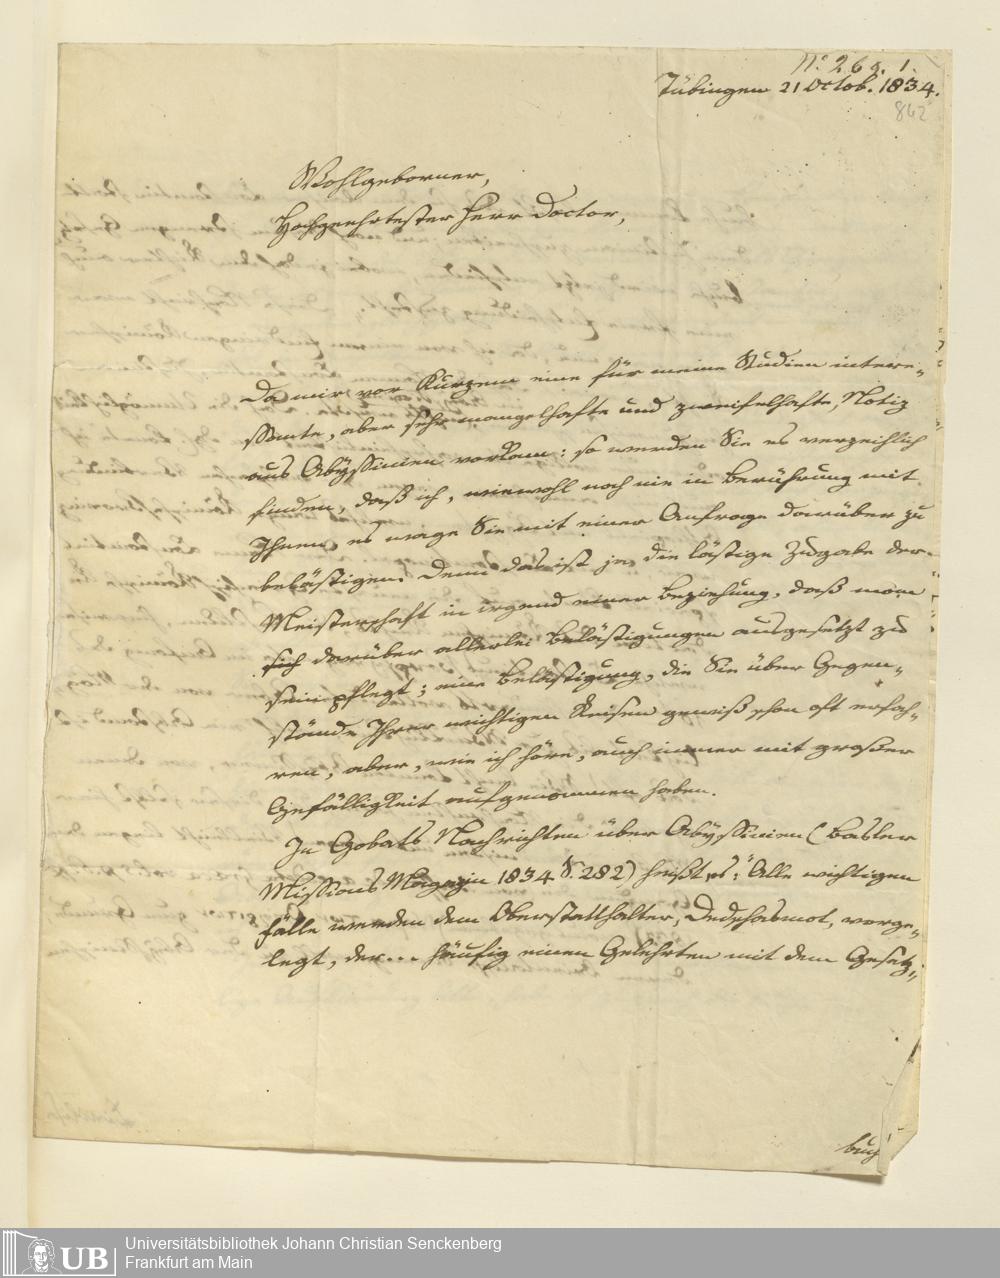 No. 268. 1.
Tübingen 21 Octob. 1834.
862
Wohlgeborner,
Hochgeehrtester Herr Doctor,
Da mir vor Kurzem eine für meine Studien intere-
ssante, aber sehr mangelhafte und zweifelhafte, Notiz
aus Abyssinien vorkam: so werden Sie es verzeihlich
finden, daß ich, wiewohl noch nie in Berührung mit
Ihnen, es wage Sie mit einer Anfrage darüber zu
belästigen. Denn das ist ja die lästige Zugabe der
Meisterschaft in irgend einer Beziehung, daß man
sich darüber allerlei Belästigungen ausgesetzt zu
sein pflegt; eine Belästigung, die Sie über Gegen-
stände Ihrer wichtigen Reisen gewiß schon oft erfah-
ren, aber, wie ich höre, auch immer mit großer
Gefälligkeit aufgenommen haben.
In Gobats Nachrichten über Abyssinien (Basler
Missions Magazin 1834 S. 282) heißt es: "Alle wichtigen
Fälle werden dem Oberstatthalter, Dedschasmat, vorge-
legt, der... häufig einen Gelehrten mit dem Gesetz-
buch
UB
Universitätsbibliothek Johann Christian Senckenberg
Frankfurt am Main